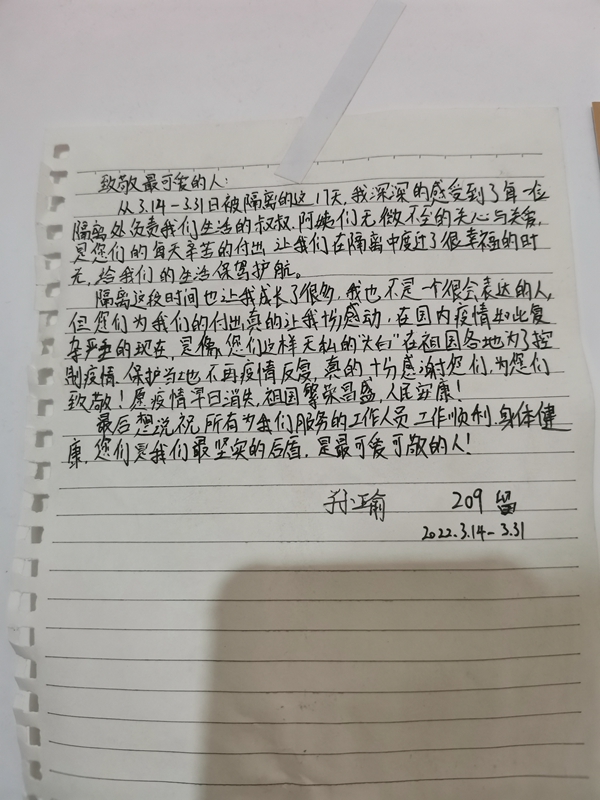 致敬最可爱的人:
从3.14-3.31日被隔离的这17天,我深深的感受到了每一位
隔离处负责我们生活的叔叔.阿姨们无微不至的关心与关爱,
是您们的每天辛苦的付出,让我们在隔离中度过了很幸福的时
光,给我们的生活保驾护航。
隔离这段时间也让我成长了很多,我也不是一个很会表达的人,
但您们为我们的付出真的让我十分感动,在国内疫情如此复
杂严重的现在,是像您们这样无私的“大白”在祖国各地为了控
制疫情.保护当地不再疫情反复,真的十分感谢您们,为您们
致敬!愿疫情早日消失,祖国繁荣昌盛,人民安康!
最后想说祝,所有为我们服务的工作人员工作顺利.身体健
康,您们是我们最坚实的后盾,是最可爱可敬的人!
孙瑜 209留
2022.3.14-3.31